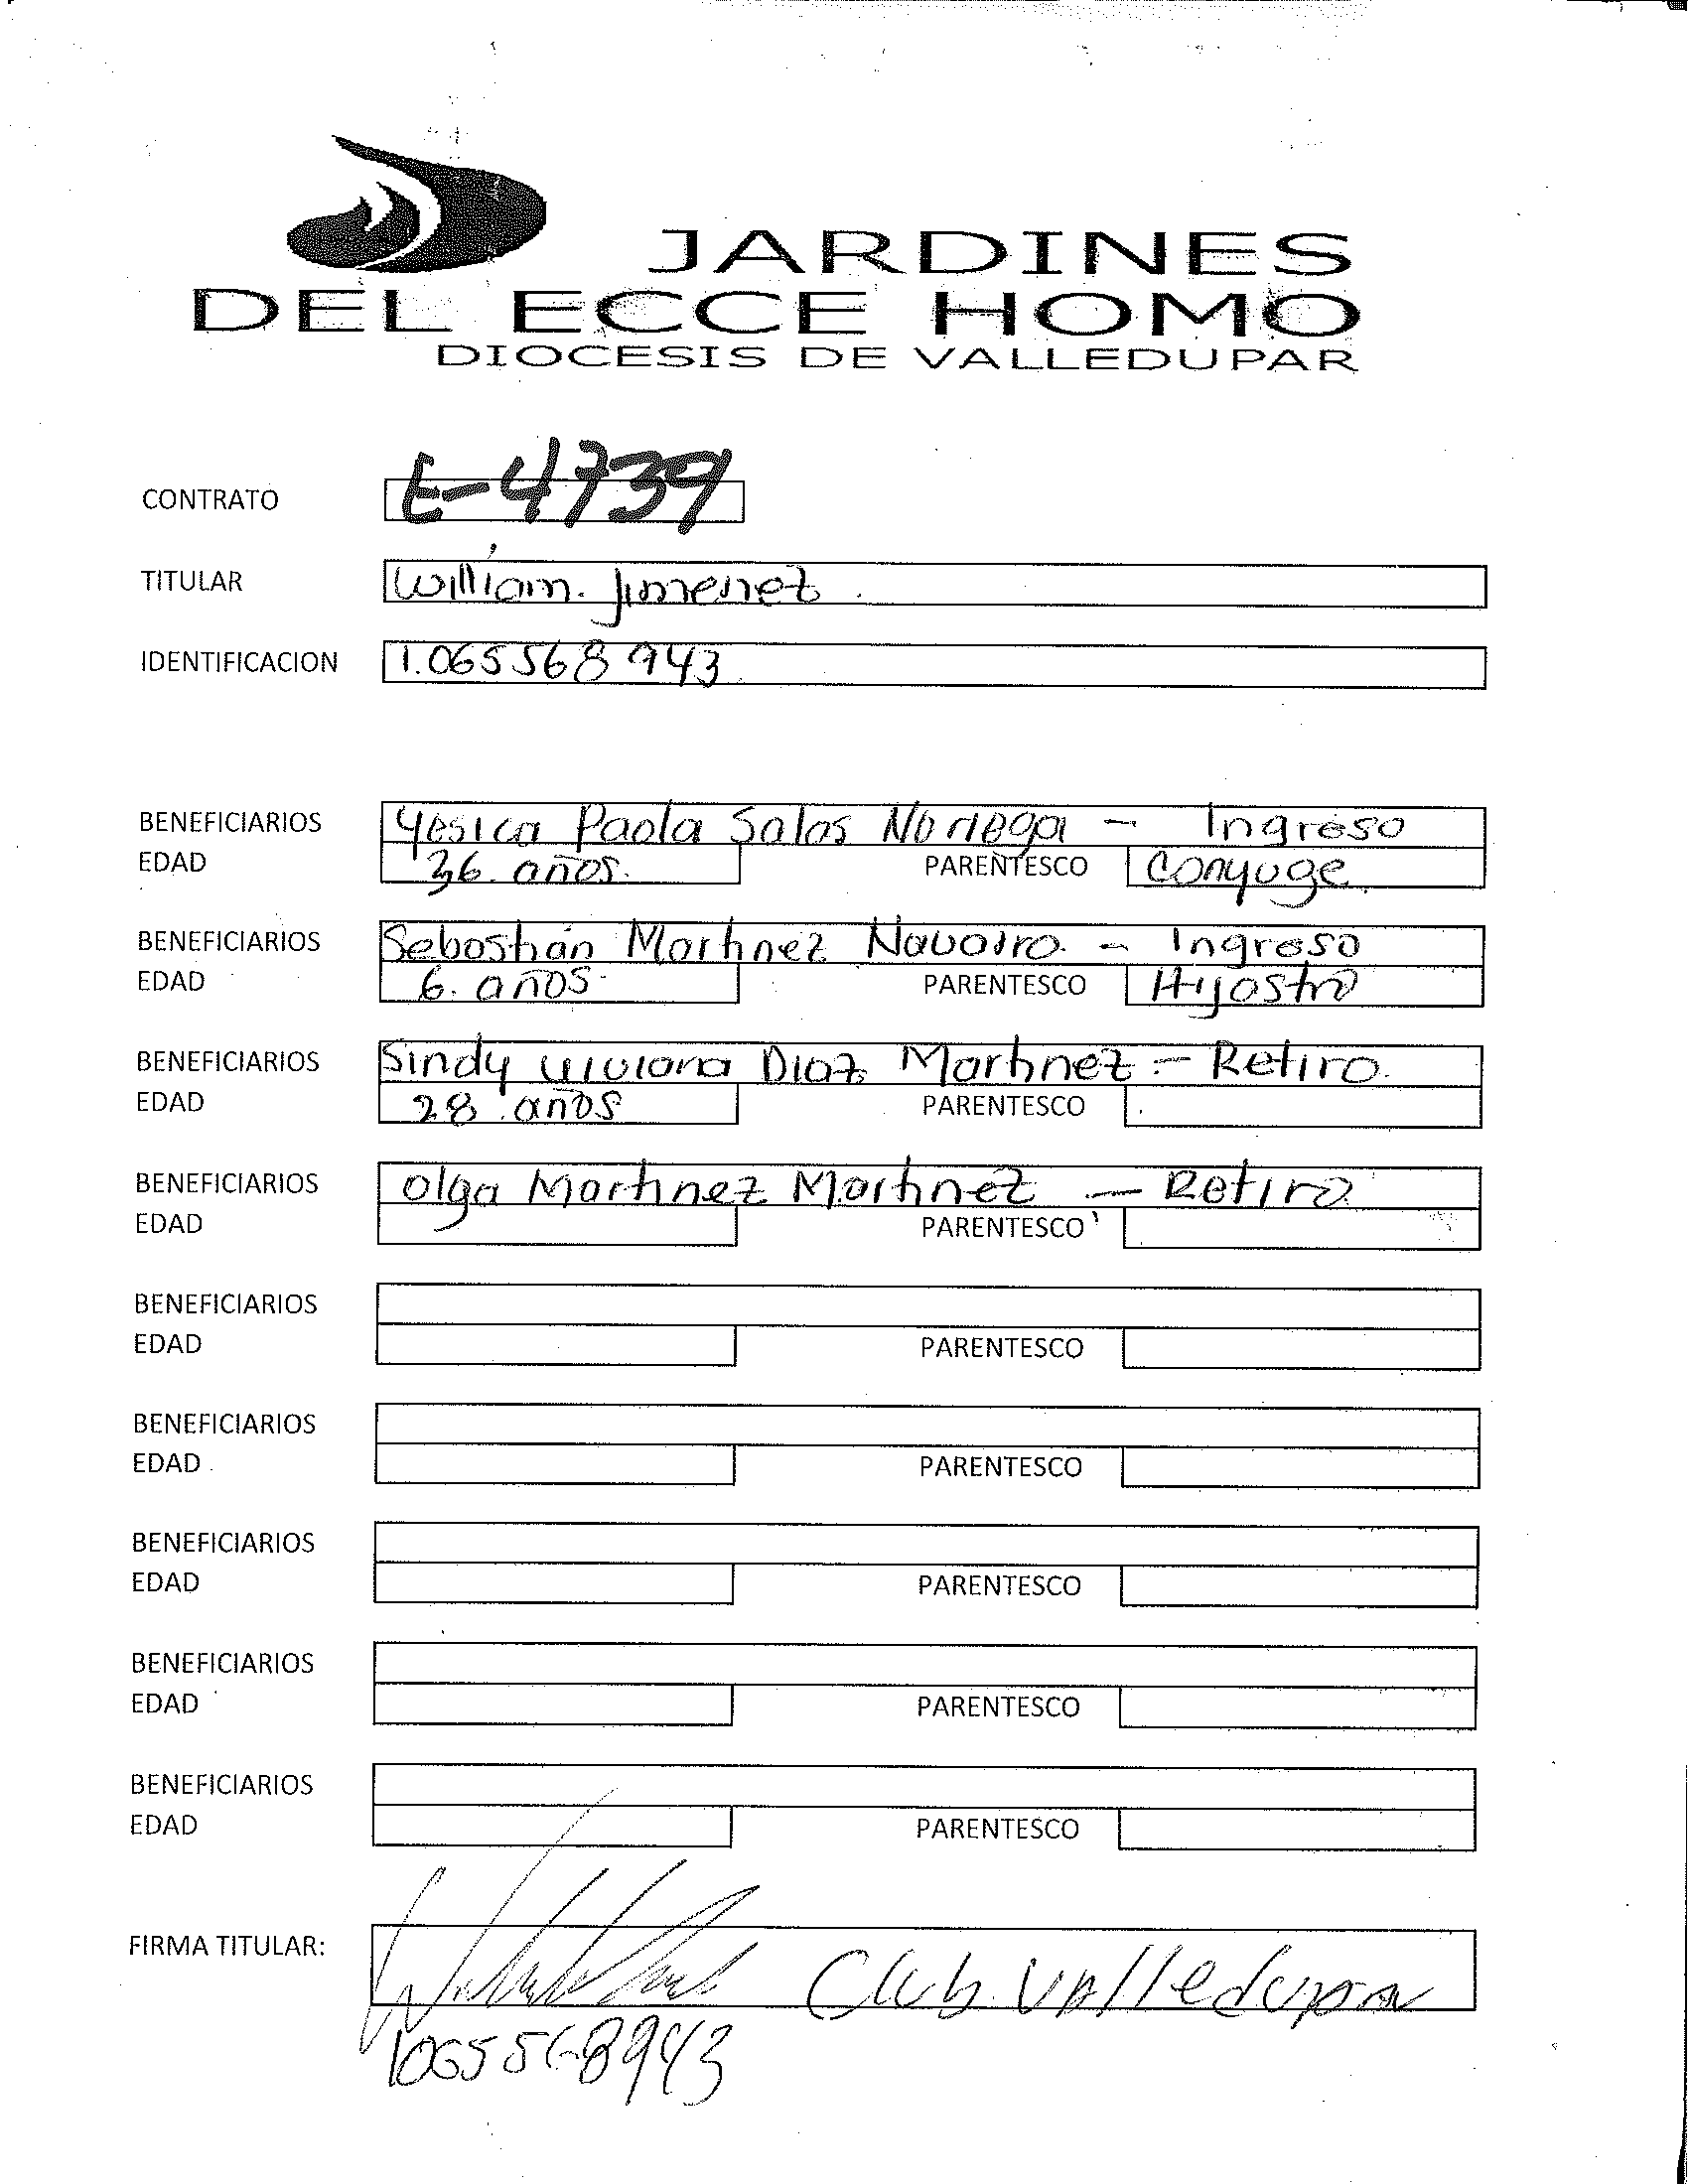 JARDINES
DEL ECCE HOMO
DIOCESIS DE VALLEDUPAR
CONTRATO E-4739
TITULAR William. Jimenez.
IDENTIFICACION 1.065568943
BENEFICIARIOS Yesica Paola Salas Noriega - Ingreso
EDAD 36. años. PARENTESCO Conyuge.
BENEFICIARIOS Sebastián Martinez Navarro. - Ingreso
EDAD 6. años. PARENTESCO Hijastro
BENEFICIARIOS Sindy Viviana Diaz Martinez - Retiro.
EDAD 28. años PARENTESCO
BENEFICIARIOS Olga Martinez Martinez - Retiro.
EDAD PARENTESCO
BENEFICIARIOS
EDAD PARENTESCO
BENEFICIARIOS
EDAD PARENTESCO
BENEFICIARIOS
EDAD PARENTESCO
BENEFICIARIOS
EDAD PARENTESCO
BENEFICIARIOS
EDAD PARENTESCO
FIRMA TITULAR: Club Valledupar
1065568943